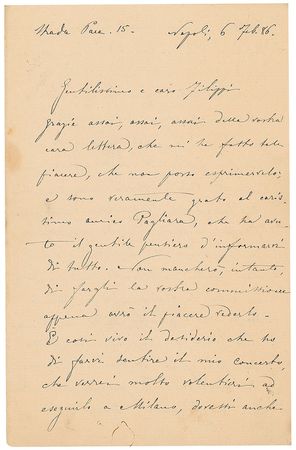 Strada Pace. 15. Napoli, 6 Feb. 86.
Gentilissimo e caro Filippi
Grazie assai, assai, assai della vostra
cara lettera, che mi ha fatto tale
piacere, che non posso esprimervelo;
e sono veramente grato al caris-
simo amico Pagliara, che ha avu-
to il gentile pensiero d'informarvi
di tutto. Non mancherò, intanto,
di fargli la vostra commissione
appena avrò il piacere vederlo.
E così vivo il desiderio che ho
di farvi sentire il mio concerto,
che verrei molto volentieri ad
eseguirlo a Milano, dovessi anche